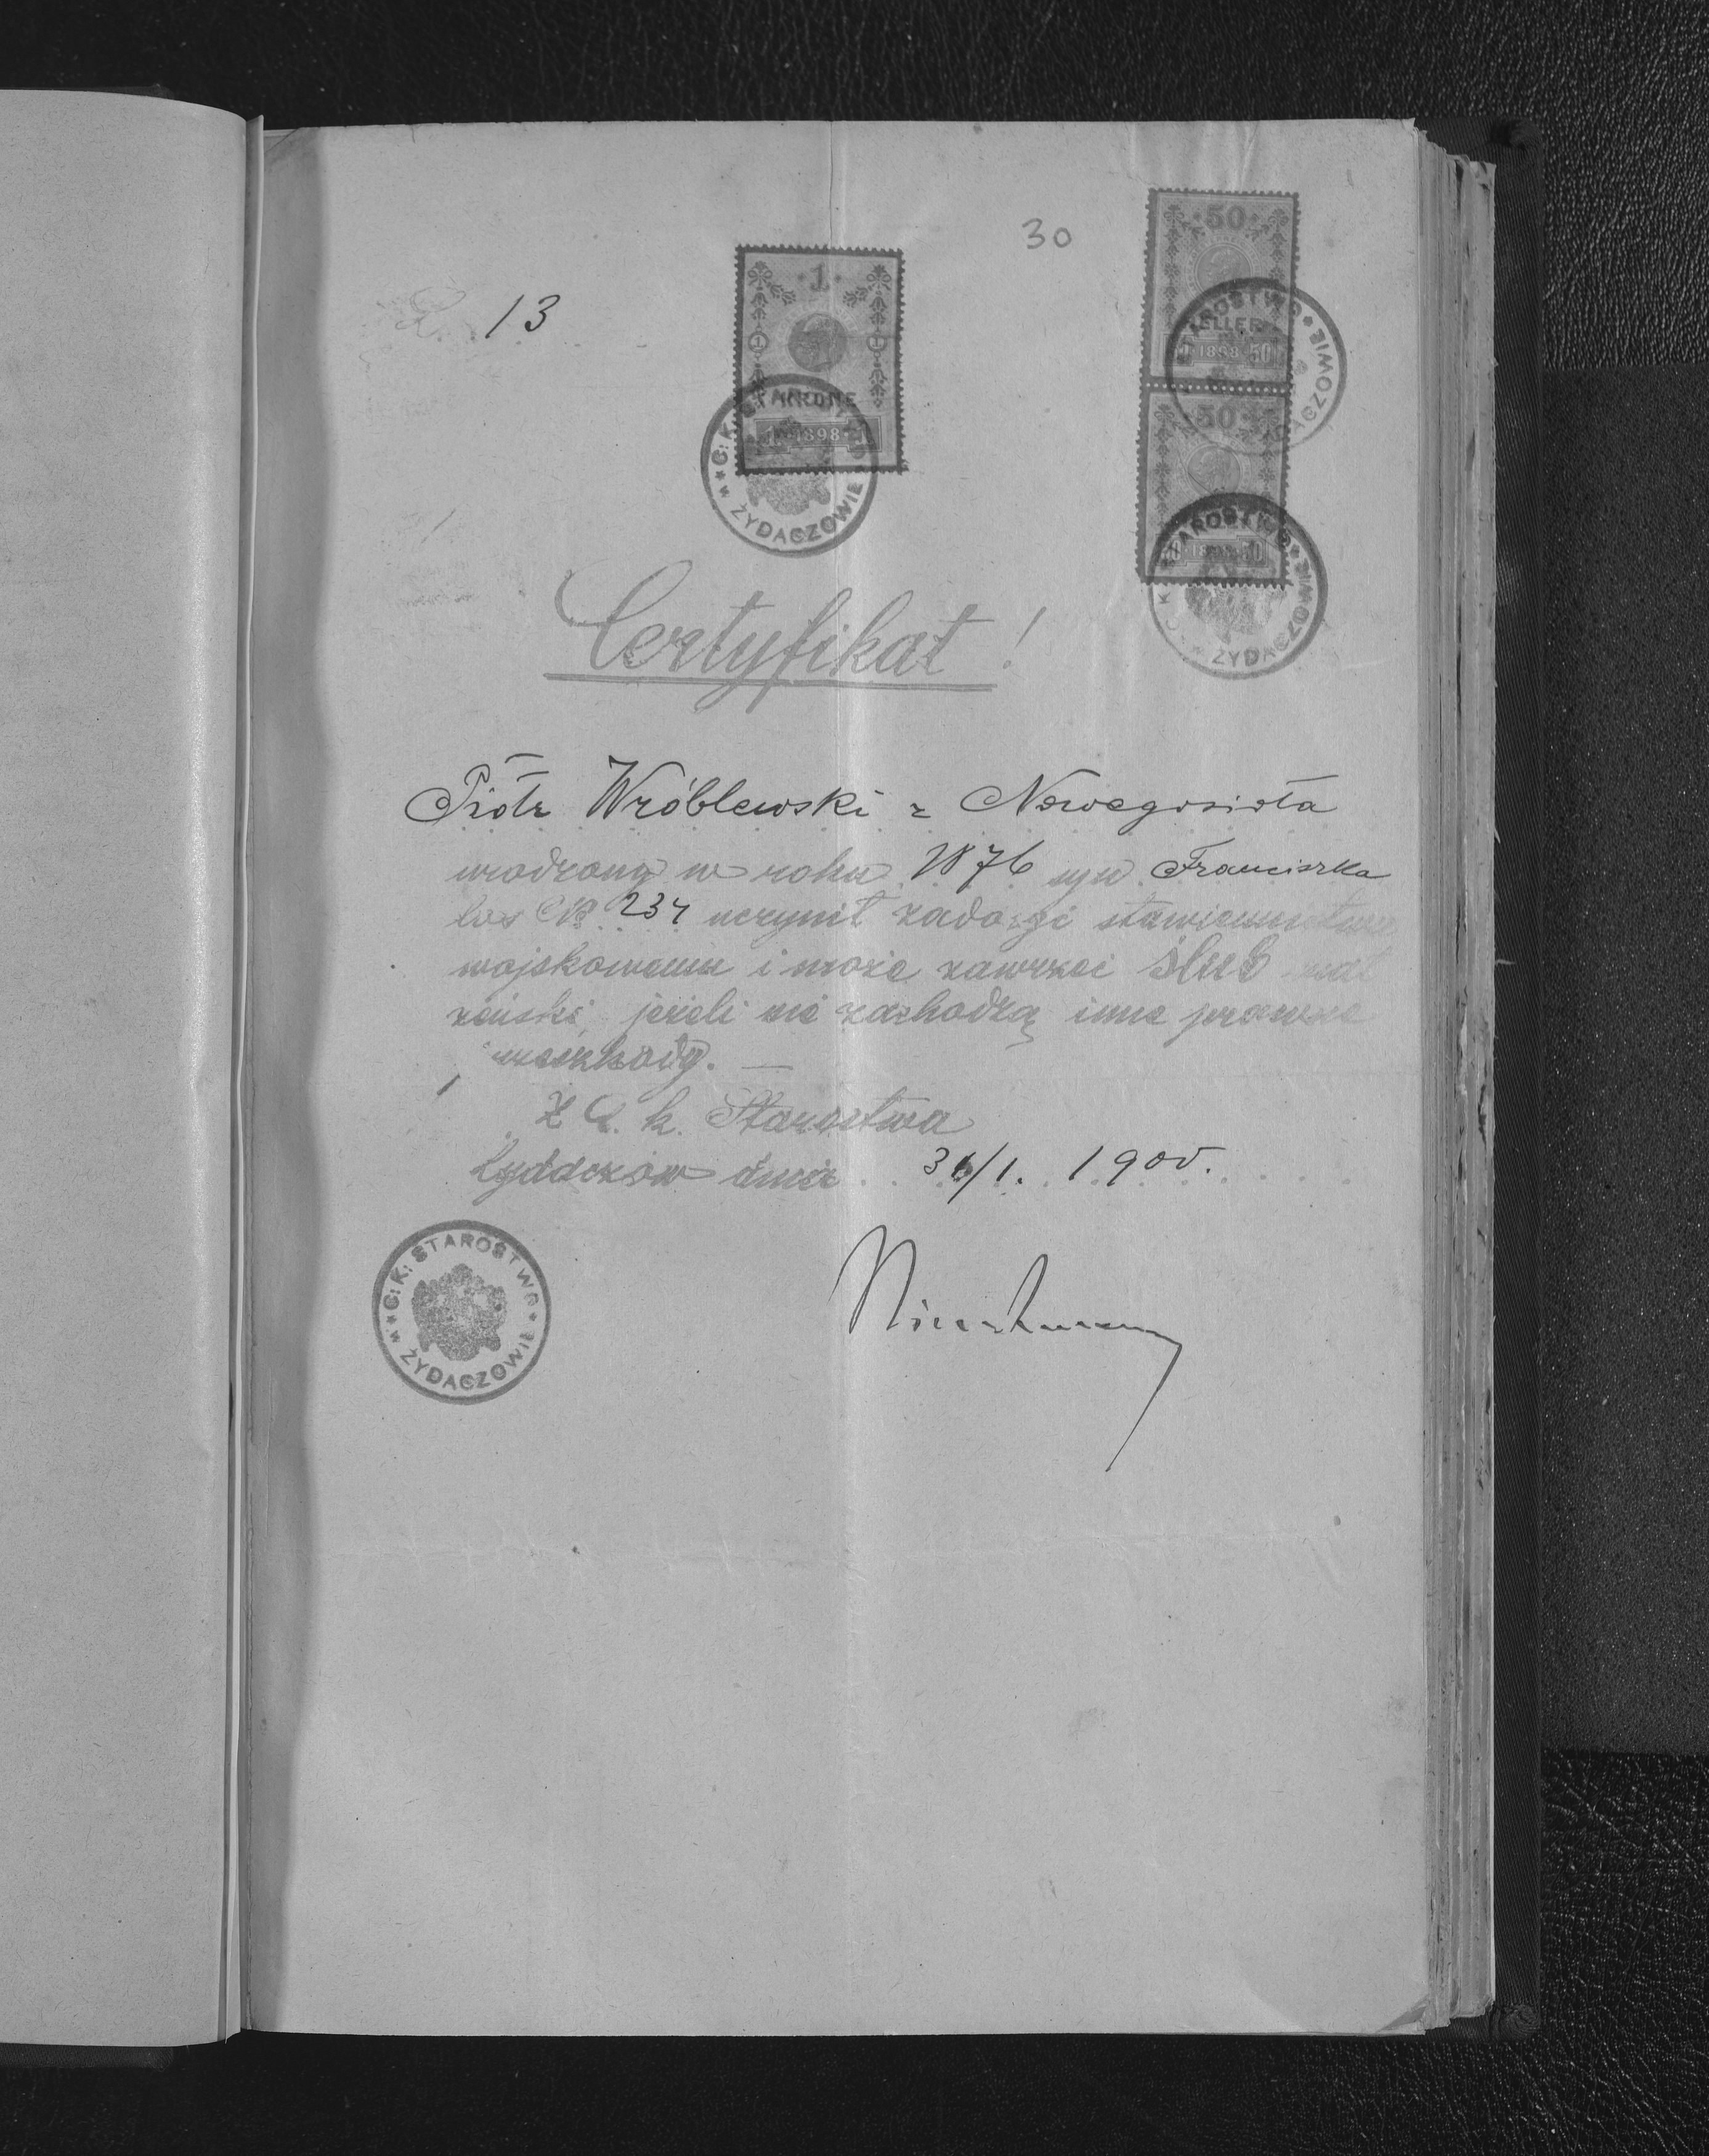 30
L. 13
1
1 1
KRONE
1 1898 1
C. K. STAROSTWO
w ŻYDACZOWIE
50
HELLER
1898 50
C. K. STAROSTWO
w ŻYDACZOWIE
50
50 1898 50
C. K. STAROSTWO
w ŻYDACZOWIE
Certyfikat !
Piotr Wróblewski z Nowegosioła
urodzony w roku 1876 syn Franciszka
los No 234 uczynił zadosyć stawiennictwu
wojskowemu i może zawrzeć ślub mał
żeński, jeżeli nie zachodzą inne prawne
przeszkody. —
Z C. k. Starostwa
Żydaczów dnia 31/1. 1900.
C. K. STAROSTWO
w ŻYDACZOWIE